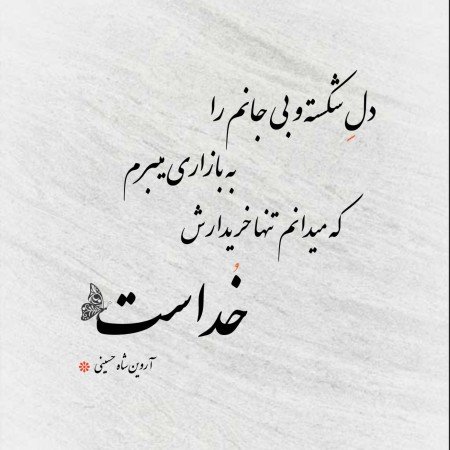 دلِ شکسته و بی جانم را
به بازاری میبرم
که میدانم تنها خریدارش
خُداست
آروین شاه حسینی